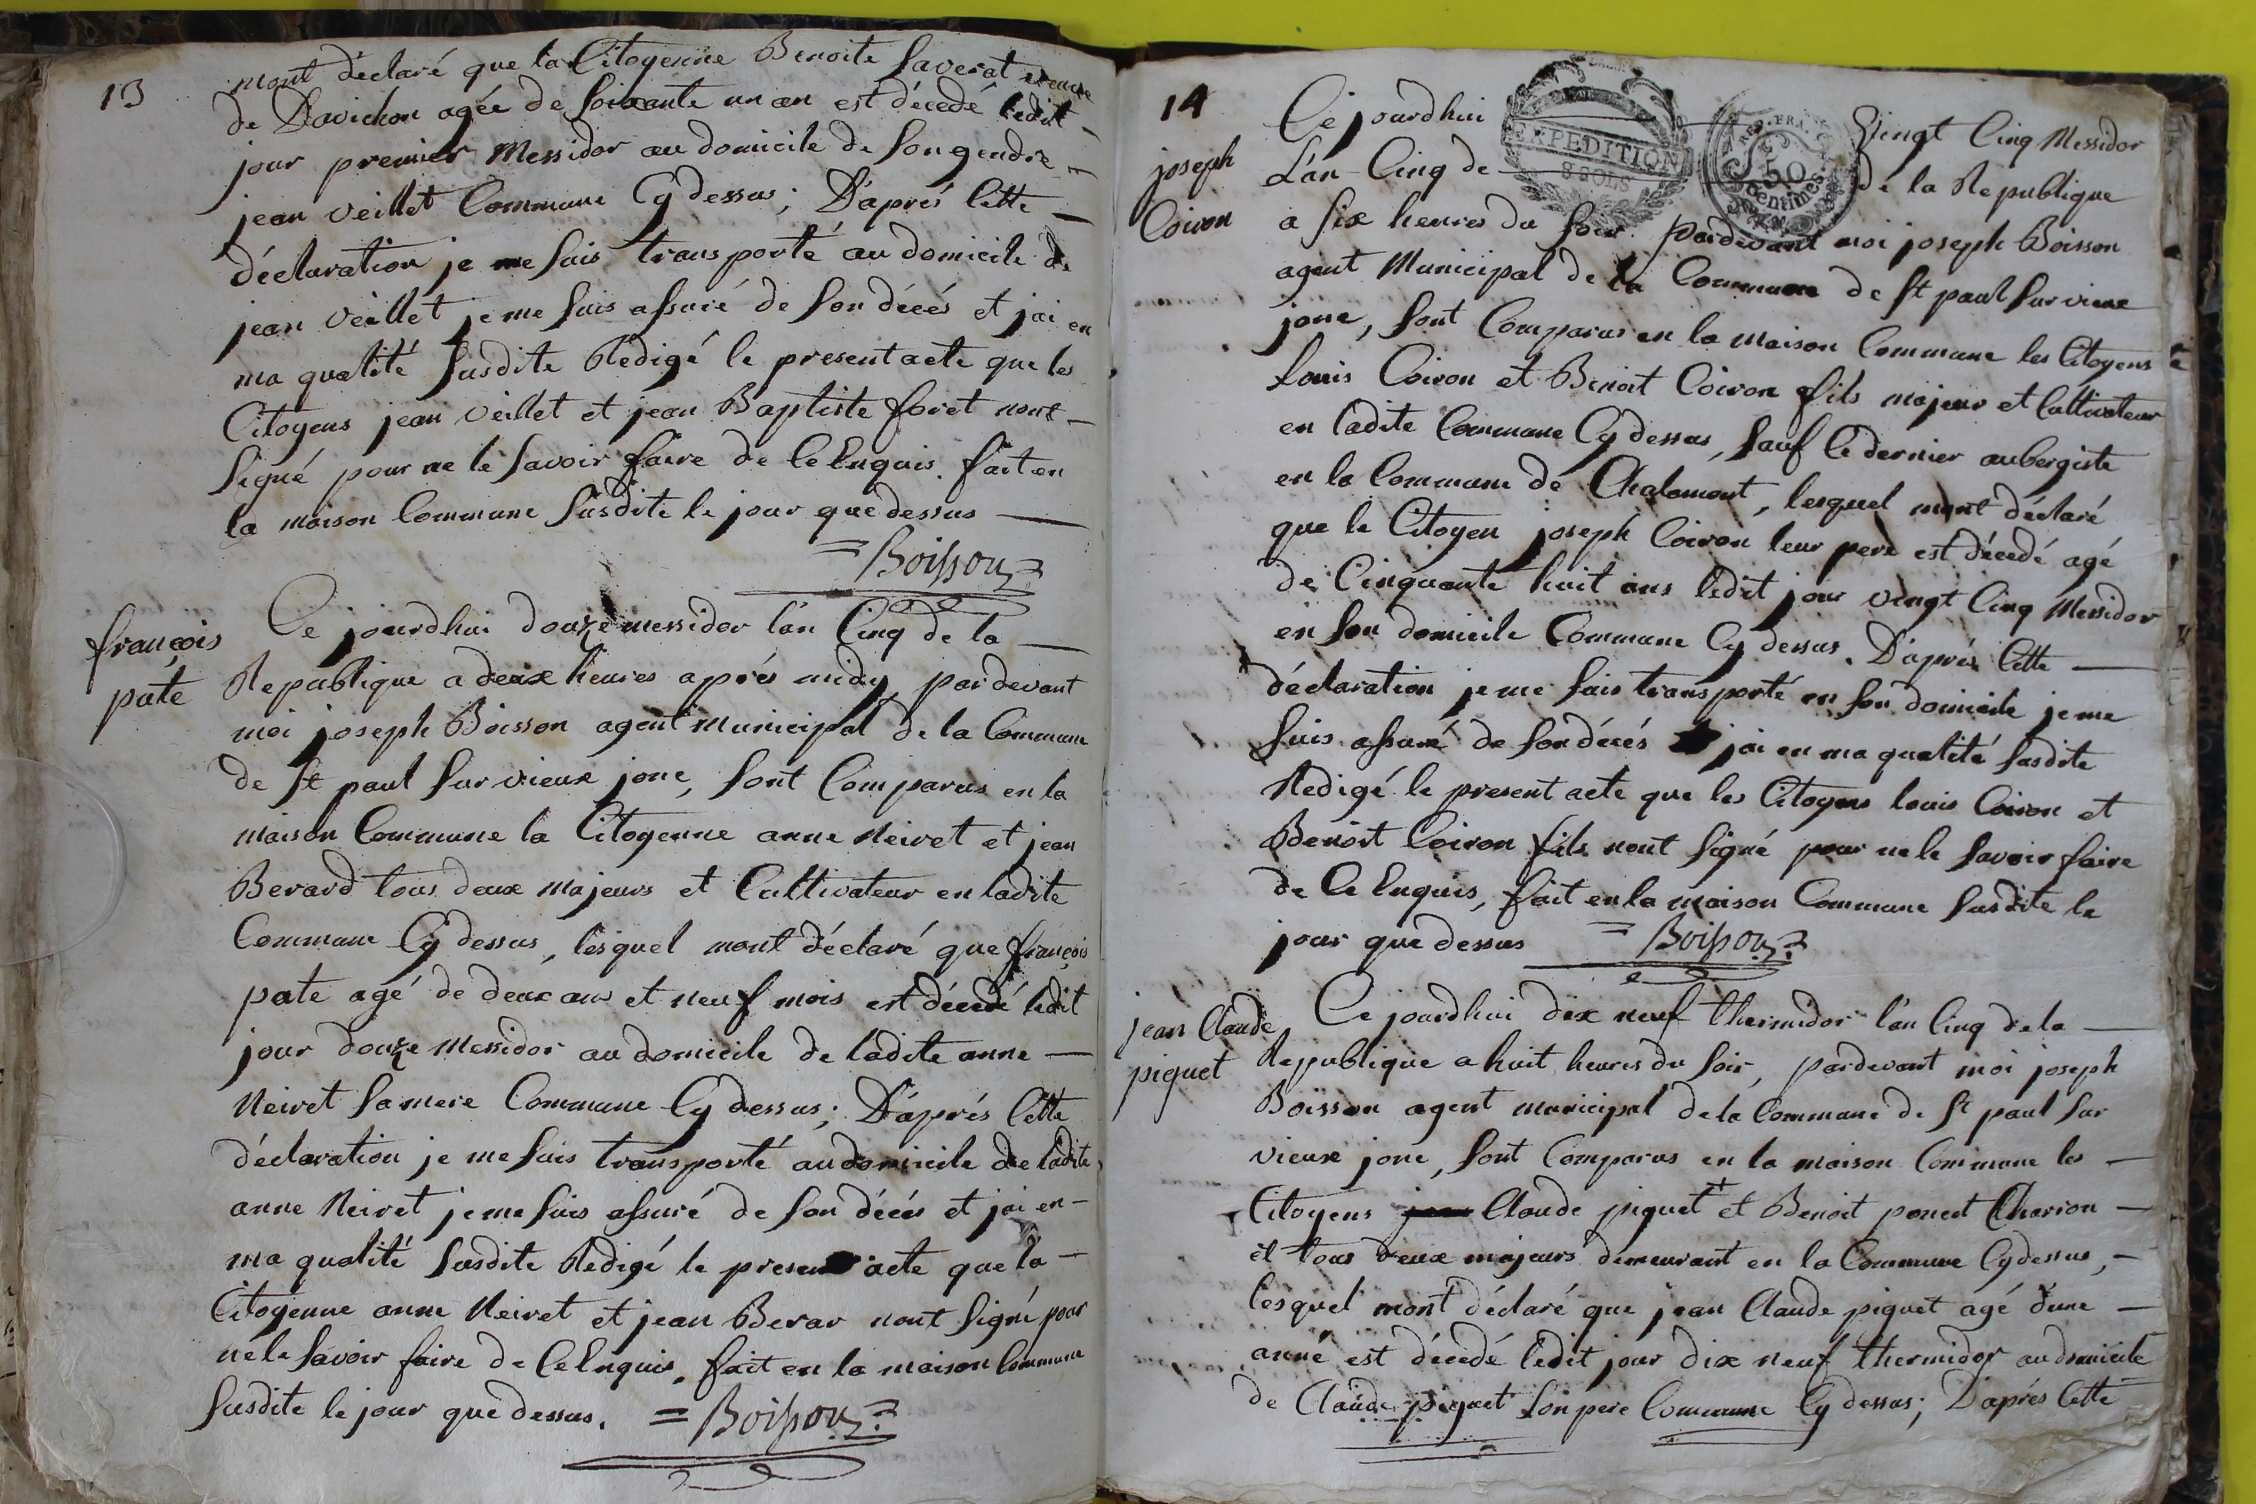 13
mont déclaré que la Citoyenne Benoite Saverat veuve
de Davichon agée de Soixante un an est décedé ledit
jour premier Messidor au domicile de Son gendre
jean veillet Commune Cy dessus; D'aprés Cette
déclaration je me suis transporté au domicile de
jean Veillet je me suis assuré de Son décés et jai en
ma qualité Susdite Redigé le present acte que les
Citoyens jean veillet et jean Baptiste foret nont
Signé pour ne le Savoir faire de Ce Enquis. fait en
la maison Commune Susdite le jour que dessus
= Boisson
françois
paté
Ce jourdhui douze messidor lán Cinq de la
Republique a deux heures aprés midy pardevant
moi joseph Boisson agent Municipal de la Commune
de St paul Sur vieux jonc, Sont Comparus en la
maison Commune la Citoyenne anne Neivet et jean
Berard tous deux majeurs et Cultivateur en ladite
Commune Cy dessus, lesquel mont déclaré que françois
pate agé de deux ans et neuf mois est décedé ledit
jour douze Messidor au domicile de ladite anne
Neivet Sa mere Commune Cy dessus; D'aprés Cette
déclaration je me suis transporté au domicile de ladite
anne Neivet je me suis assuré de Son décés et jai en
ma qualité Susdite Redigé le present acte que la
Citoyenne anne Neivet et jean Berar nont Signé pour
ne le Savoir faire de Ce Enquis, fait en la maison Commune
Susdite le jour que dessus. = Boisson
14
joseph
Coiron
EXPEDITION
8 SOLS
REP. FRA.
50
Centimes.
Ce jourdhui Vingt Cinq Messidor
L'án Cinq de de la Republique
a Six heures du Soir pardevant moi joseph Boisson
agent Municipal de la Commune de St paul Sur vieux
jonc, Sont Comparus en la maison Commune les Citoyens
Louis Coiron et Benoit Coiron fils majeur et Cultivateur
en ladite Commune Cy dessus, Sauf le dernier aubergiste
en la Commune de Chalamont, lesquel mont déclaré
que le Citoyen joseph Coiron leur pere est décedé agé
de Cinquante huit ans ledit jour vingt Cinq Messidor
en Son domicile Commune Cy dessus. D'aprés Cette
déclaration je me suis transporté en Son domicile je me
Suis assuré de Son décés jai en ma qualité Susdite
Redigé le present acte que les Citoyens louis Coiron et
Benoit Coiron fils nont Signé pour ne le Savoir faire
de Ce Enquis, fait en la maison Commune Susdite le
jour que dessus = Boisson
jean Claude
piquet
Ce jourdhui dix neuf thermidor lán Cinq de la
Republique a huit heures du Soir, pardevant moi joseph
Boisson agent municipal de la Commune de St paul Sur
vieux jonc, Sont Comparus en la maison Commune les
Citoyens Claude piquet et Benoit poncet Charion
et tous deux majeurs demeurant en la Commune Cy dessus,
lesquel mont déclaré que jean Claude piquet agé d'une
anné est décedé ledit jour dix neuf thermidor au domicile
de Claude piquet Son pere Commune Cy dessus; D'aprés Cette